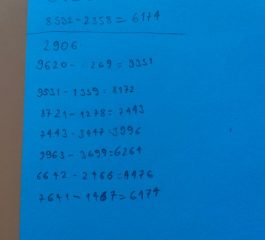 8532-2358 = 6174
2906
9620- 0269 = 9351
9531-1359 = 8172
8721-1278 = 7443
7443-3447=3996
9963-3699=6264
6642-2466=4176
7641-1467=6174